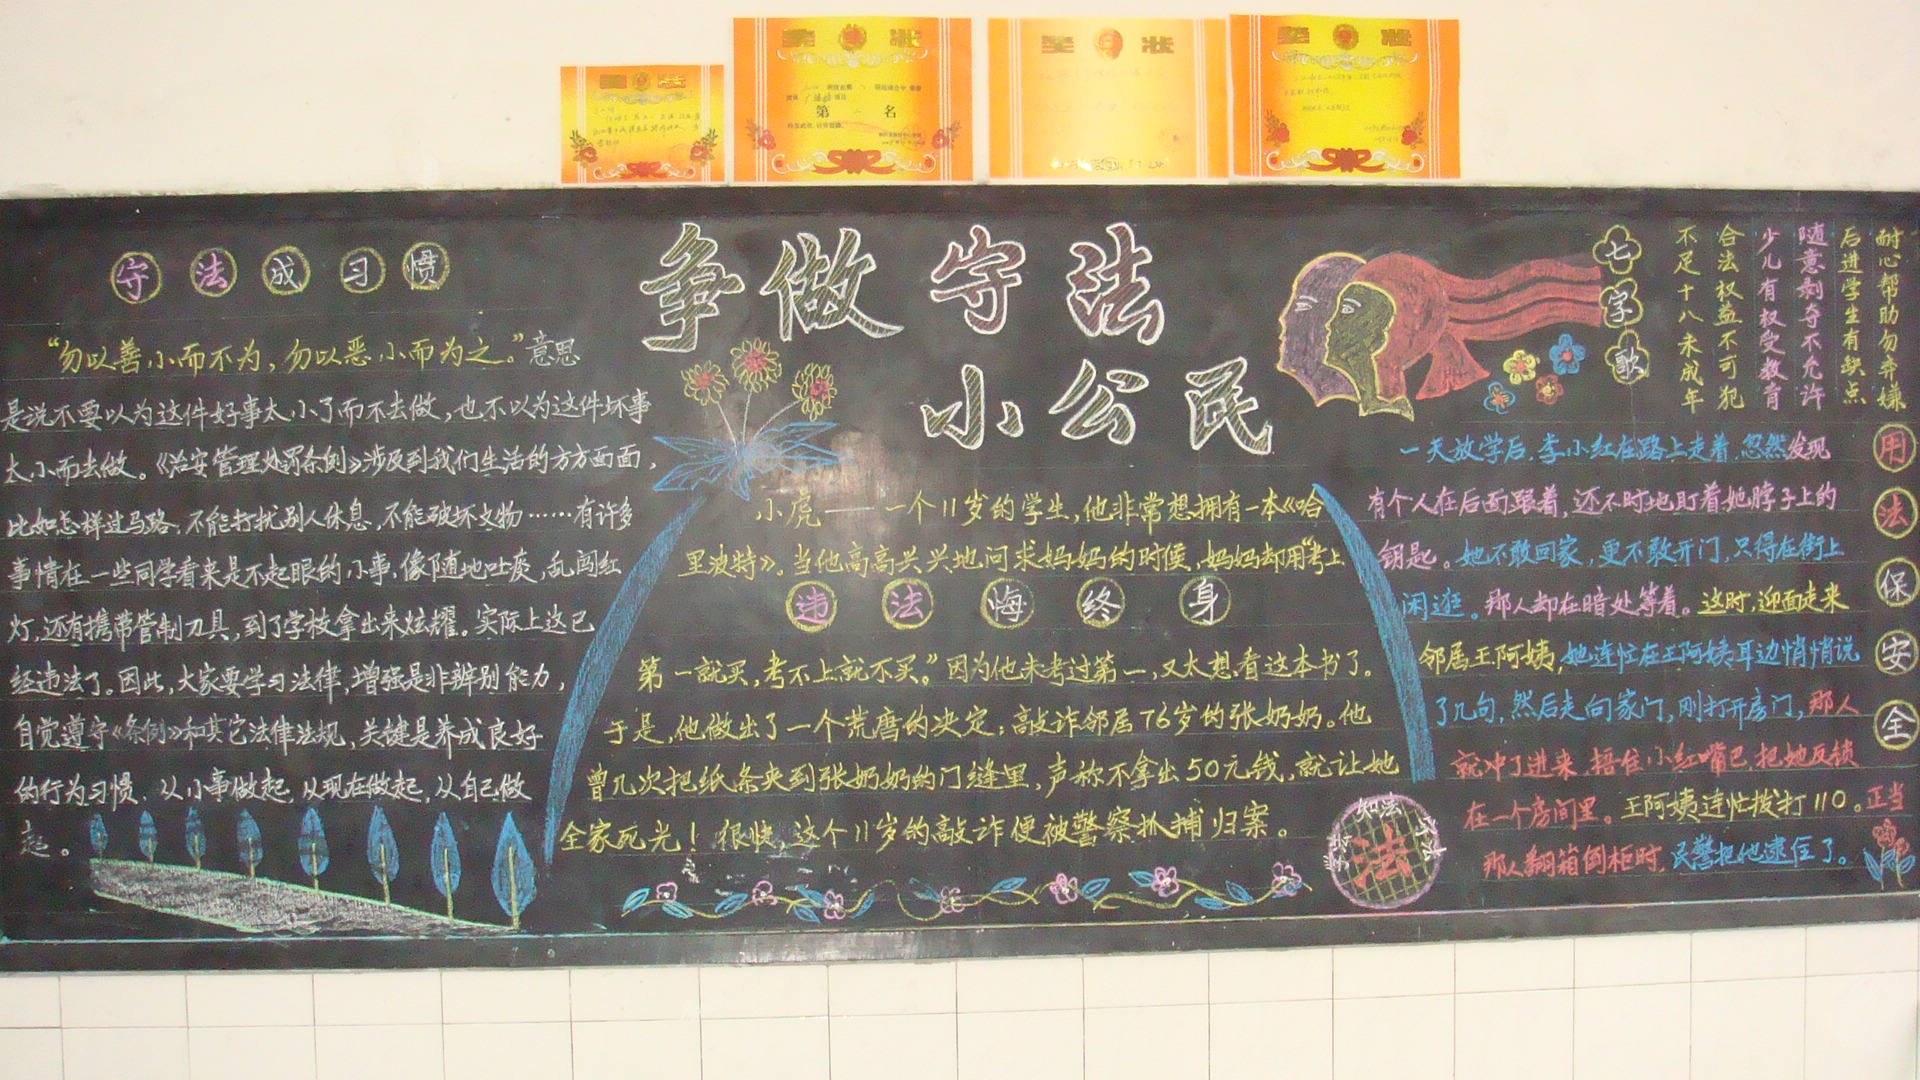 奖状
奖状
第一名
奖状
奖状
争做守法
小公民
守法成习惯
“勿以善小而不为，勿以恶小而为之。”意思
是说不要以为这件好事太小了而不去做，也不以为这件坏事
太小而去做。《治安管理处罚条例》涉及到我们生活的方方面面，
比如怎样过马路，不能打扰别人休息，不能破坏文物……有许多
事情在一些同学看来是不起眼的小事，像随地吐痰，乱闯红
灯，还有携带管制刀具，到了学校拿出来炫耀。实际上这已
经违法了。因此，大家要学习法律，增强是非辨别能力，
自觉遵守《条例》和其它法律法规，关键是养成良好
的行为习惯，从小事做起，从现在做起，从自己做
起。
小虎——一个11岁的学生，他非常想拥有一本《哈
里波特》。当他高高兴兴地问求妈妈的时候，妈妈却用“考上
违法悔终身
第一就买，考不上就不买。”因为他未考过第一，又太想看这本书了。
于是，他做出了一个荒唐的决定：敲诈邻居76岁的张奶奶。他
曾几次把纸条夹到张奶奶的门缝里，声称不拿出50元钱，就让她
全家死光！很快，这个11岁的敲诈便被警察抓捕归案。
七字歌
不足十八未成年
合法权益不可犯
少儿有权受教育
随意剥夺不允许
后进学生有缺点
耐心帮助勿弃嫌
用法保安全
一天放学后，李小红在路上走着，忽然发现
有个人在后面跟着，还不时地盯着她脖子上的
钥匙。她不敢回家，更不敢开门，只得在街上
闲逛。那人却在暗处等着。这时，迎面走来
邻居王阿姨，她连忙在王阿姨耳边悄悄说
了几句，然后走向家门，刚打开房门，那人
就冲了进来，捂住小红嘴巴，把她反锁
在一个房间里。王阿姨连忙拨打110。正当
那人翻箱倒柜时，民警把他逮住了。
知法
法